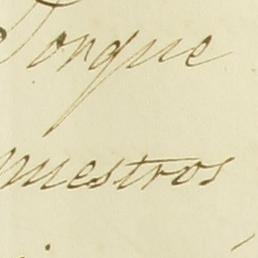 Porque
nuestros